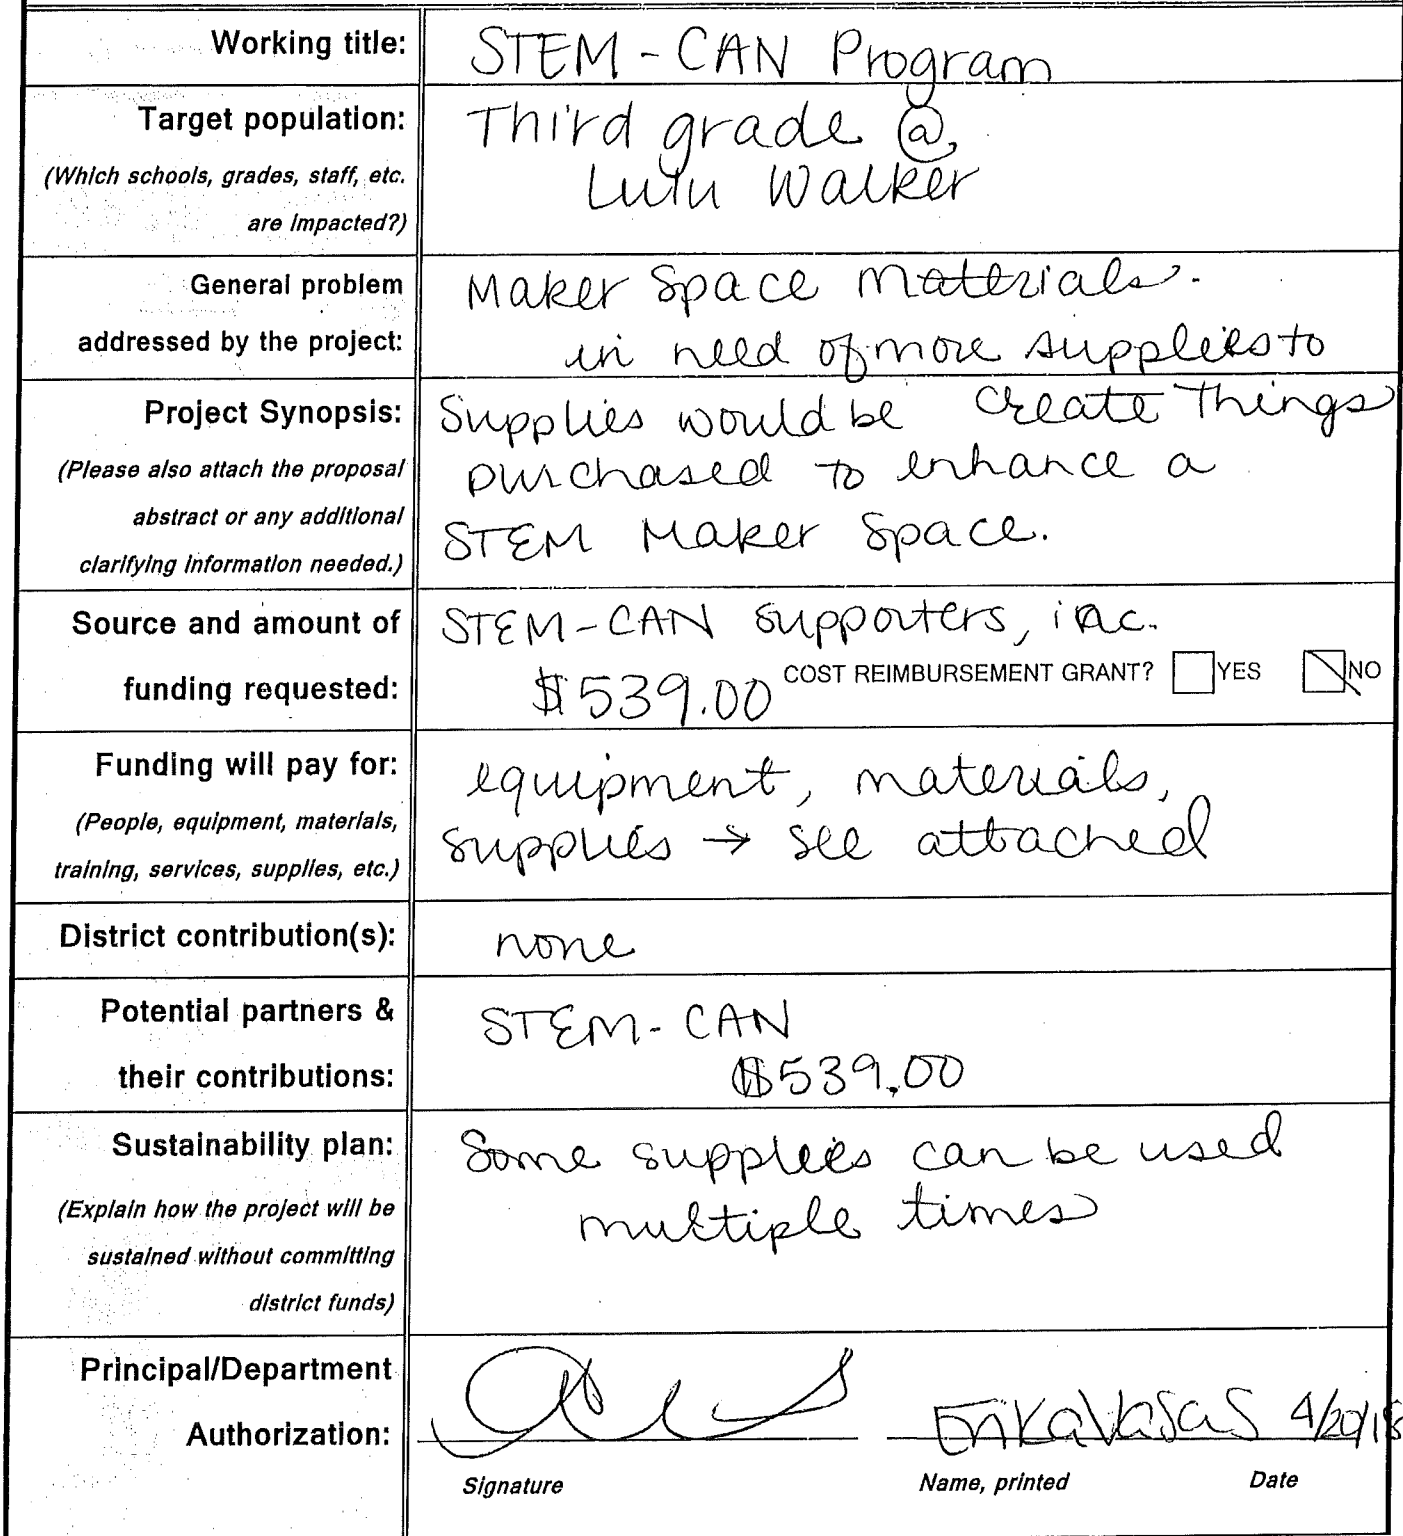 Working title:
STEM - CAN Program
Target population:
(Which schools, grades, staff, etc.
are impacted?)
Third grade @
Lulu Walker
General problem
addressed by the project:
Maker Space Materials.
in need of more supplies to
create things
Project Synopsis:
(Please also attach the proposal
abstract or any additional
clarifying information needed.)
Supplies would be
purchased to enhance a
STEM Maker Space.
Source and amount of
funding requested:
STEM-CAN supporters, inc.
$539.00 COST REIMBURSEMENT GRANT? YES NO
Funding will pay for:
(People, equipment, materials,
training, services, supplies, etc.)
equipment, materials,
supplies → see attached
District contribution(s):
none
Potential partners &
their contributions:
STEM- CAN
$539.00
Sustainability plan:
(Explain how the project will be
sustained without committing
district funds)
Some supplies can be used
multiple times
Principal/Department
Authorization:
Erika Vasas 4/20/18
Signature Name, printed Date